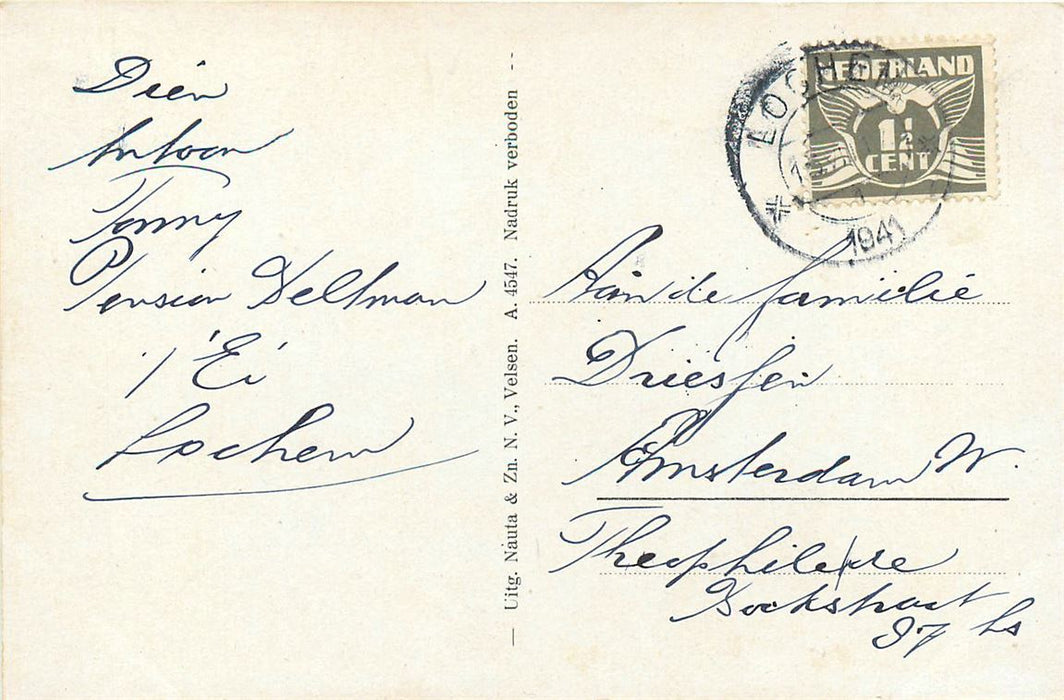 Dien
Antoon
Tonny
Pension Veltman
't Ei
Lochem
— Uitg. Nauta & Zn. N. V., Velsen. A. 4547. Nadruk verboden --
NEDERLAND
1½
CENT
LOCHEM
1941
Aan de familie
Driessen
Amsterdam W.
Theophile de
Bockstraat
97 hs